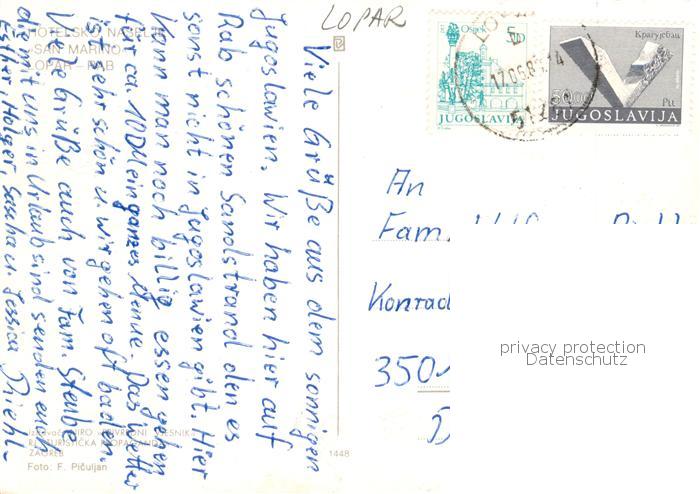 LOPAR
HOTELSKO NASELJE
»SAN MARINO«
LOPAR - RAB
Viele Grüße aus dem sonnigen
Jugoslawien. Wir haben hier auf
Rab schönen Sandstrand den es
sonst nicht in Jugoslawien gibt. Hier
kann man noch billig essen gehen
für ca. 10DM ein ganzes Menue. Das Wetter
ist sehr schön u. wir gehen oft baden.
Viele Grüße auch von Fam. Steube
die mit uns in Urlaub sind senden euch
Esther, Holger, Sascha u. Jessica Diehl
TURISTIČKA PROPAGANDA
ZAGREB
Foto: F. Pičuljan
1448
Osijek
5D
JUGOSLAVIJA
17.06.8
14
Крагујевац
50.00
JUGOSLAVIJA
An
Fam.
Konrad
350
privacy protection
Datenschutz